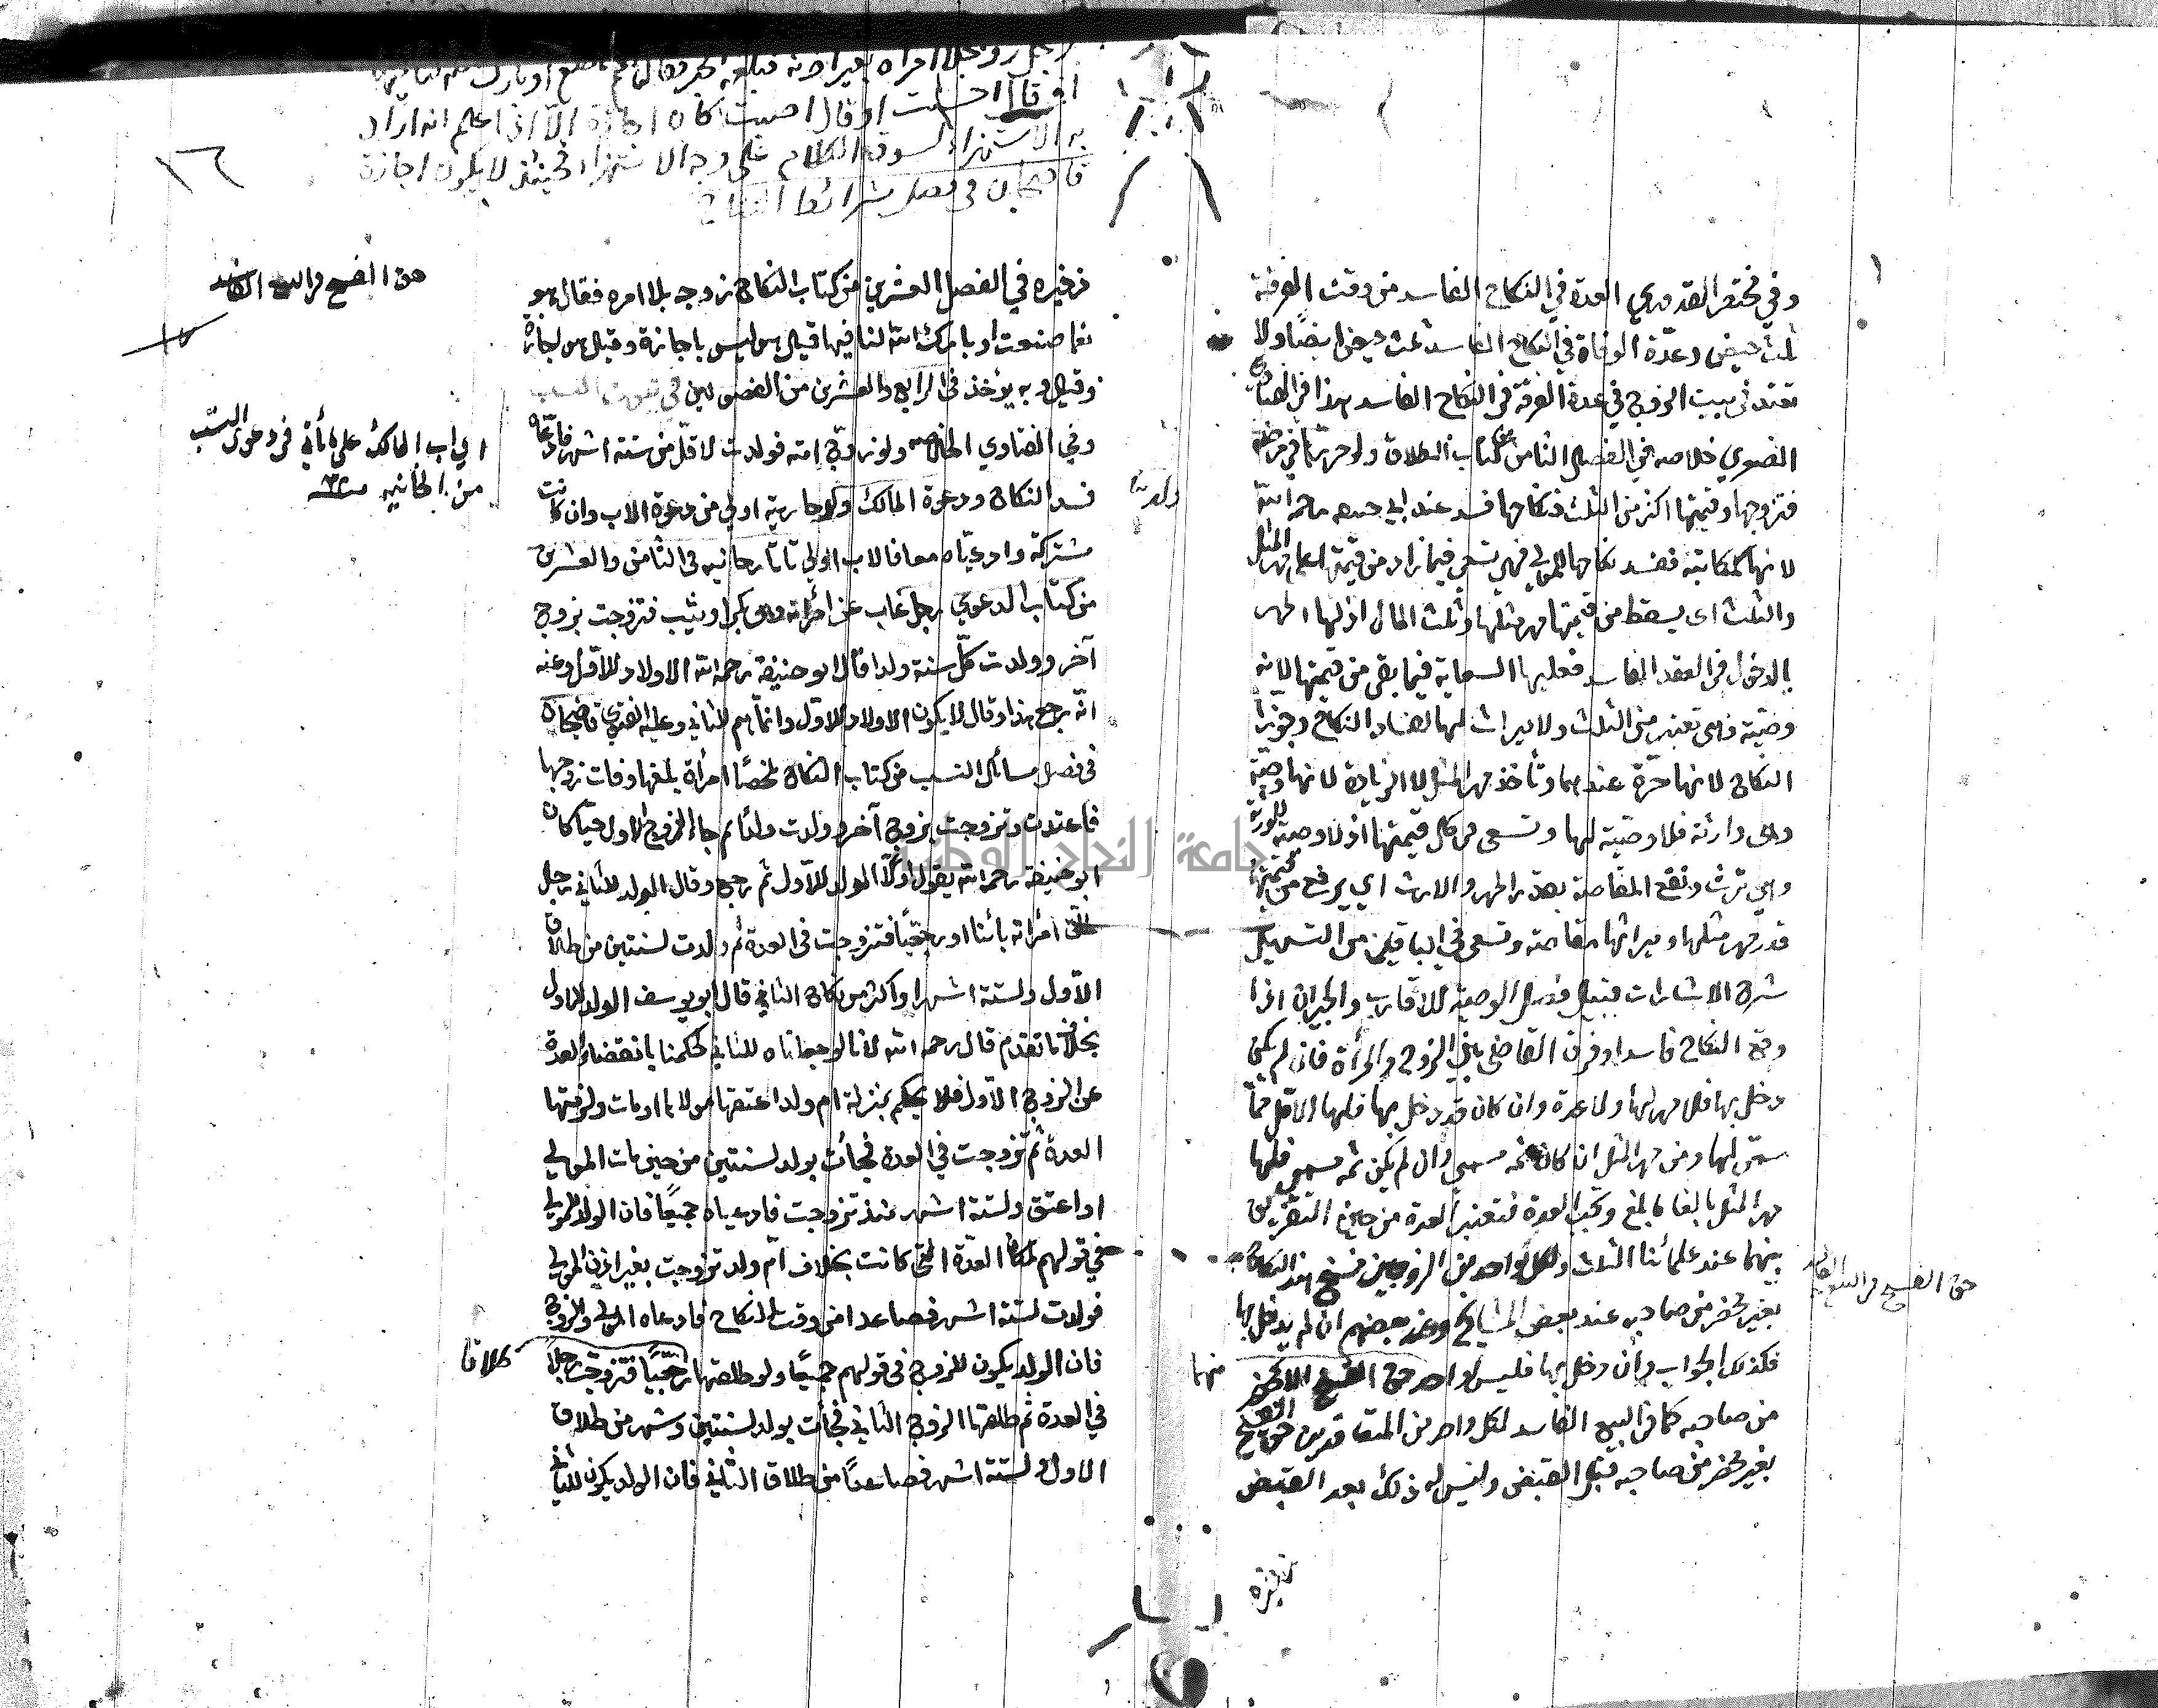 وفي مختصر القدوري العدة في النكاح الفاسد من وقت الفرقة
ثلث حيض وعدة الوفاة في النكاح الفاسد ثلث حيض ايضا ولا
تعتد في بيت الزوج في عدة الفرقة في النكاح الفاسد هذا في
خلاصه في الفصل الثامن من كتاب الطلاق ولو
فتزوجها وقيمتها اكثر من الثلث فنكاحها فسد عند ابي رحمه الله
لانها كمكاتبة ففسد نكاحها للمولى فهي تسعى فيما زاد من قيمتها على مهر المثل
والثلث اى يسقط من قيمتها مهر مثلها وثلث المال اذ لها المهر
بالدخول في العقد الفاسد فعليها السعاية فيما بقى من قيمتها لانه
وصية وهى تعتبر من الثلث ولا ميراث لها لفساد النكاح وجوزا
النكاح لانها حرة عندهما وتأخذ مهر المثل لا الزيادة لانها وصية
وهى وارثة فلا وصية لها وتسعى في كل قيمتها اذ لا وصية للورثة
وهي ترث وتقع المقاصة بقدر المهر والارث اي يرفع من قيمتها
قدر مهر مثلها وميراثها مقاصة وتسعى في الباقي من التسهيل
شرح الاشارات قبيل فصل الوصية للاقارب والجيران اذا
وقع النكاح فاسدا وفرق القاضي بين الزوج والمرأة فان لم يكن
دخل بها فلا مهر لها ولا عدة وان كان قد دخل بها فلها الاقل مما
سمى لها ومن مهر المثل ان كان ثمه مسمى وان لم يكن ثمه مسمى فلها
مهر المثل بالغا ما بلغ وتجب العدة فتعتبر العدة من حين التفريق
بينهما عند علمائنا الثلاث ولكل واحد من الزوجين فسخ هذا النكاح
بغير محضر من صاحبه عند بعض المشايخ وعند بعضهم ان لم يدخل بها
فكذلك الجواب وان دخل بها فليس لواحد حق الفسخ الا بمحضر
من صاحبه كما في البيع الفاسد لكل واحد من المتعاقدين حق الفسخ
بغير محضر من صاحبه قبل القبض وليس له ذلك بعد القبض
ذخيره
حق الفسخ في البيع الفاسد
منها
افرقال احسنت او قال اصبت كان اجازة الا اذا علم انه اراد
به الاستهزاء لسوق الكلام على وجه الاستهزاء فحينئذ لا يكون اجازة
قاضيخان في فصل شرائط النكاح
١٦
ذخيره في الفصل العشرين من كتاب النكاح زوجه بلا امره فقال هو
نعما صنعت او بارك الله لنا فيها قيل هو ليس باجازة وقيل هو اجازة
وقيل وبه يؤخذ في الرابع والعشرين من الفصولين في ثبوت النسب
وفي الفتاوي ولو زوج امته فولدت لاقل من ستة اشهر فادعاه
فسد النكاح ودعوة المالك اولى من دعوة الاب وان كانت
مشتركة وادعياه معا فالاب اولي تاتارخانيه في الثامن والعشرين
من كتاب الدعوي رجل غاب عن امرأته وهى بكر او ثيب فتزوجت بزوج
آخر وولدت كل سنة ولدا قال ابو حنيفة رحمه الله الاولاد للاول وعنه
انه رجع هذا وقال لا يكون الاولاد للاول وانما هم للثاني وعليه الفتوى قاضيخان
في فصل مسائل النسب من كتاب النكاح ملخصا امرأة بلغها وفات زوجها
فاعتدت وتزوجت بزوج آخر وولدت ولدا ثم جاء الزوج الاول حيا كان
ابو حنيفة رحمه الله يقول اولا الولد للاول ثم رجع وقال الولد للثاني رجل
طلق امرأته بائنا او رجعيا فتزوجت في العدة ثم ولدت لسنتين من طلاق
الاول ولستة اشهر او اكثر من نكاح الثاني قال ابو يوسف الولد للاول
بخلاف ما تقدم قال رحمه الله لانا لو جعلناه للثاني لحكمنا بانقضاء العدة
عن الزوج الاول فلا يحكم بمنزلة ام ولد اعتقها مولاها او مات ولزمتها
العدة ثم تزوجت في العدة فجأت بولد لسنتين من حين مات المولى
او اعتق ولستة اشهر منذ تزوجت فادعياه جميعا فان الولد للمولى
في قولهم لمكان العدة التي كانت بخلاف ام ولد تزوجت بغير اذن المولى
فولدت لستة اشهر فصاعدا من وقت النكاح فادعاه المولى والزوج
فان الولد يكون للزوج في قولهم جميعا ولو طلقها رجعيا فتزوجت رجلا
في العدة ثم طلقها الزوج الثاني فجأت بولد لسنتين وشهر من طلاق
الاول ولستة اشهر فصاعدا من طلاق الثاني فان الولد يكون للثاني
حق الفسخ في البيع الفاسد
طلاقا
جامعة النجاح الوطنية